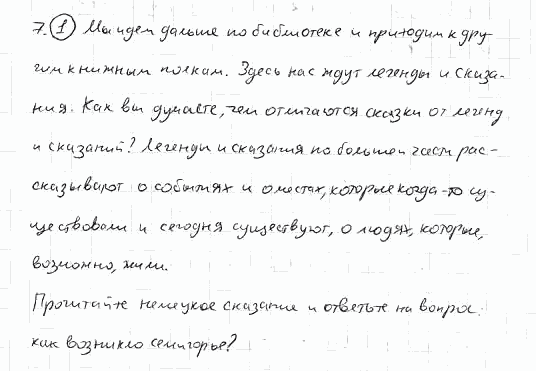 7. 1 Мы идем дальше по библиотеке и приходим к дру
гим книжным полкам. Здесь нас ждут легенды и сказа-
ния. Как вы думаете, чем отличаются сказки от легенд
и сказаний? Легенды и сказания по большей части рас-
сказывают о событиях и о местах, которые когда-то су-
ществовали и сегодня существуют, о людях, которые,
возможно, жили.
Прочитайте немецкое сказание и ответьте на вопрос:
как возникло семигорье?